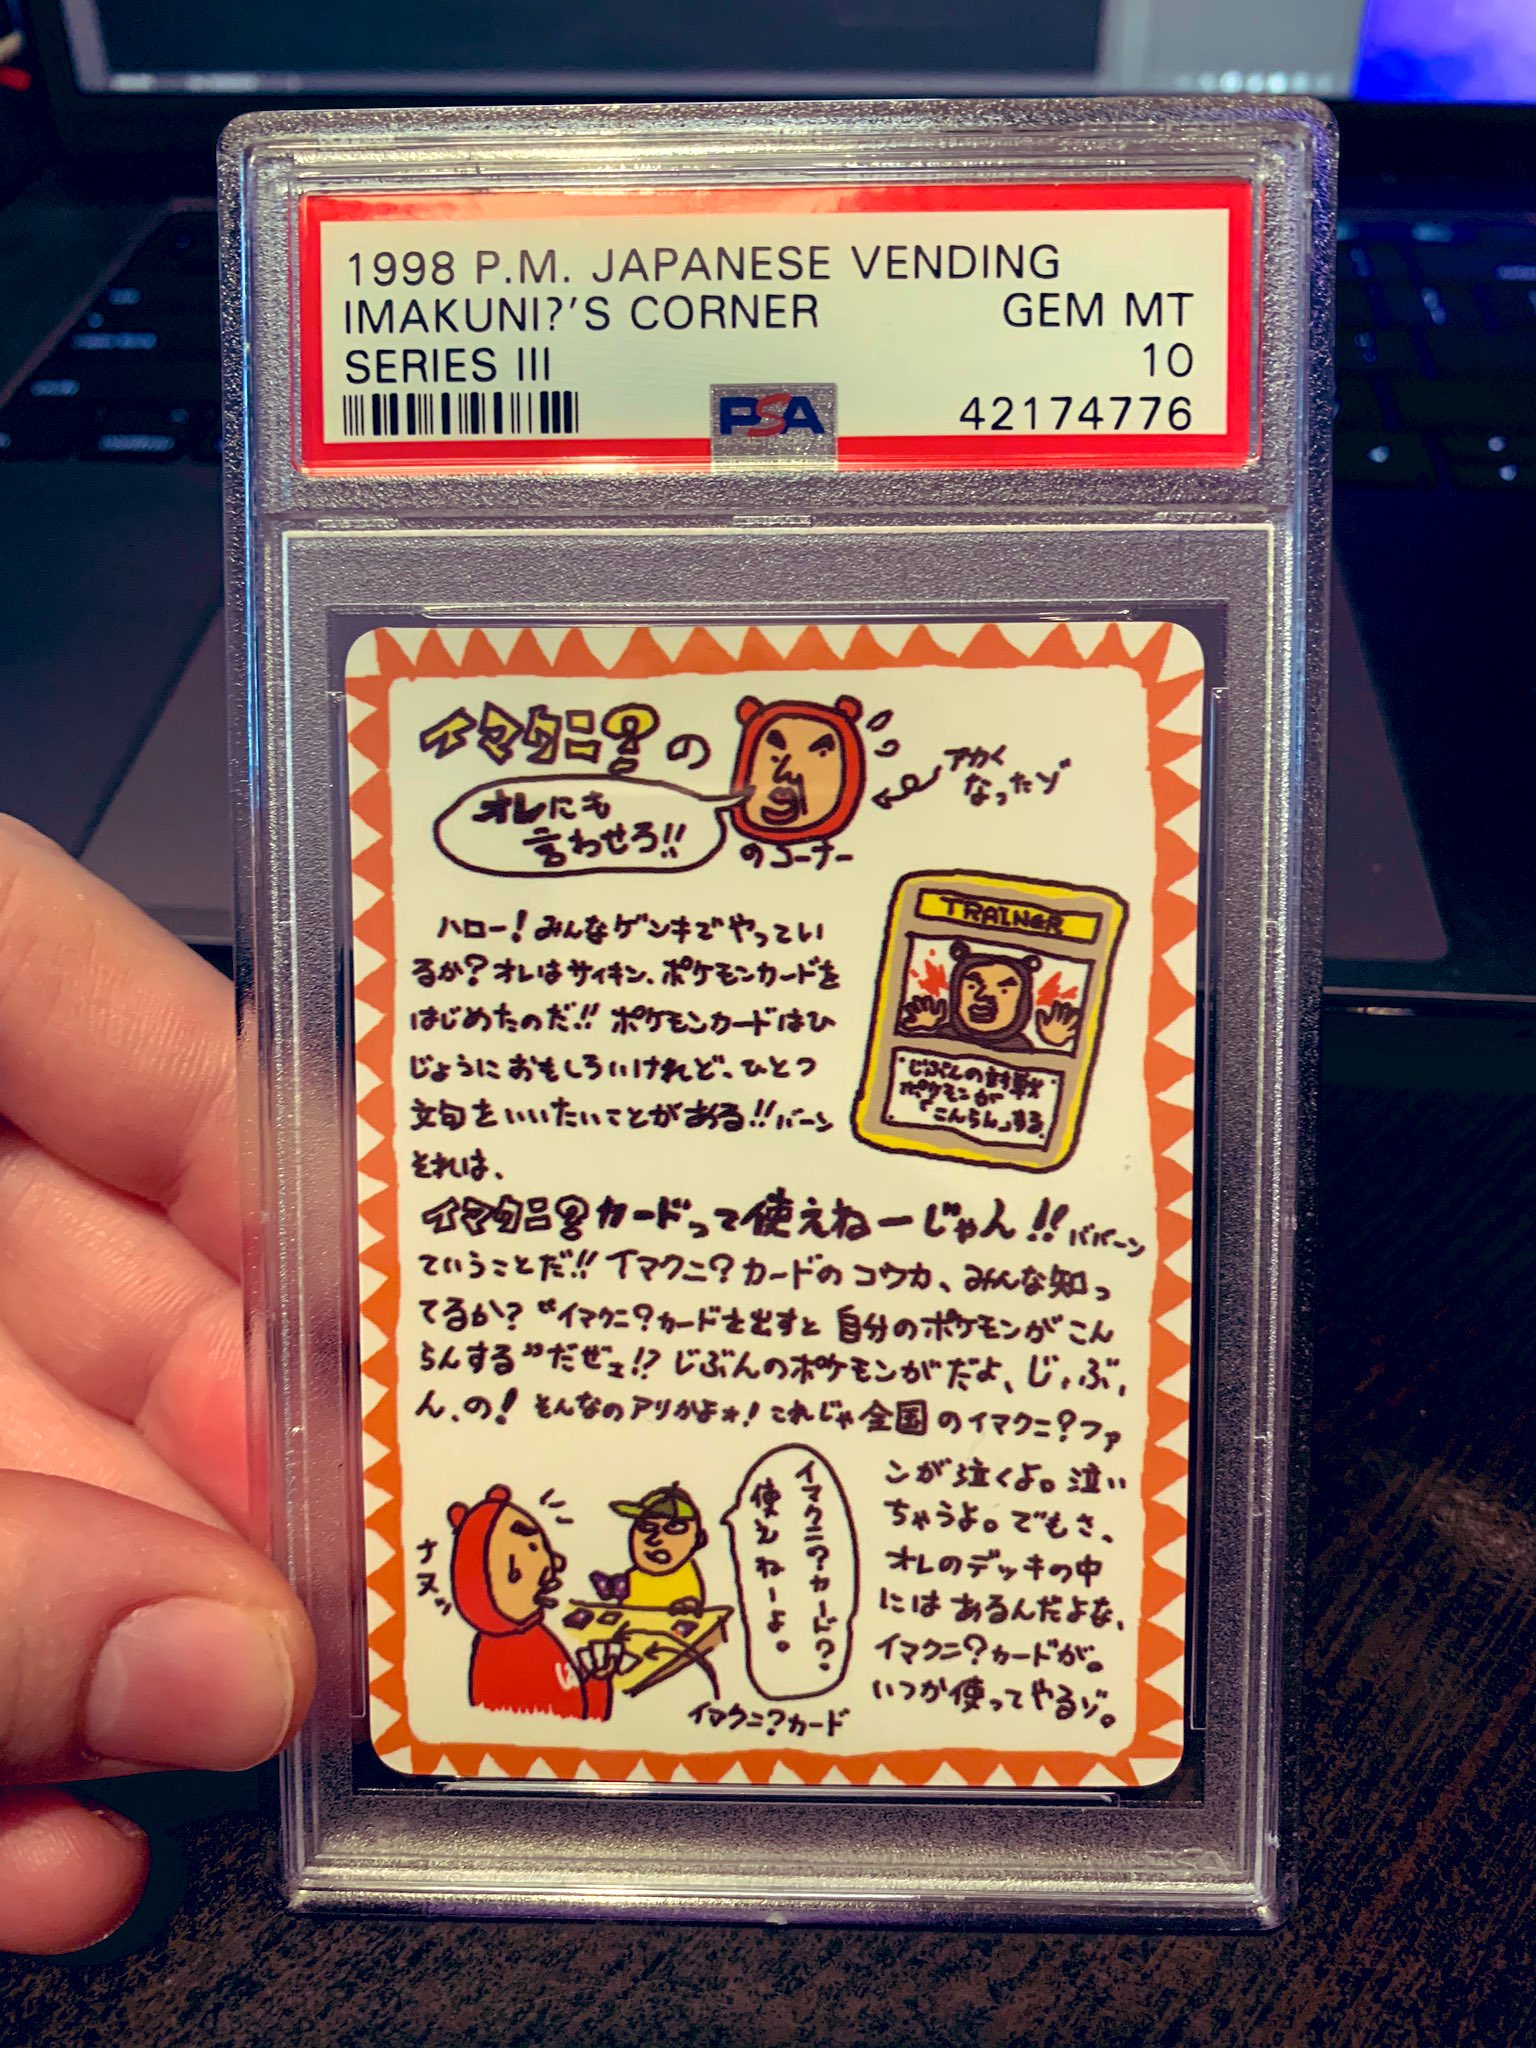 1998 P.M. JAPANESE VENDING
IMAKUNI?'S CORNER GEM MT
SERIES III 10
PSA 42174776
イマクニ?の
オレにも
言わせろ!!
のコーナー
アカく
なったゾ
ハロー!みんなゲンキでやってい
るか?オレはサイキン、ポケモンカードを
はじめたのだ!!ポケモンカードはひ
じょうにおもしろいけれど、ひとつ
文句をいいたいことがある!!バーン
それは、
TRAINER
・じぶんの対戦
ポケモンが
「こんらん」する。
イマクニ?カードって使えねーじゃん!!ババーン
ていうことだ!!イマクニ?カードのコウカ、みんな知っ
てるか?“イマクニ?カードを出すと自分のポケモンがこん
らんする”だぜェ!?じぶんのポケモンがだよ、じ、ぶ、
ん、の!そんなのアリかよォ!これじゃ全国のイマクニ?ファ
ンが泣くよ。泣い
ちゃうよ。でもさ、
オレのデッキの中
にはあるんだよな、
イマクニ?カードが。
いつか使ってやるゾ。
イマクニ?カード?
使えねーよ。
ナヌッ
イマクニ?カード